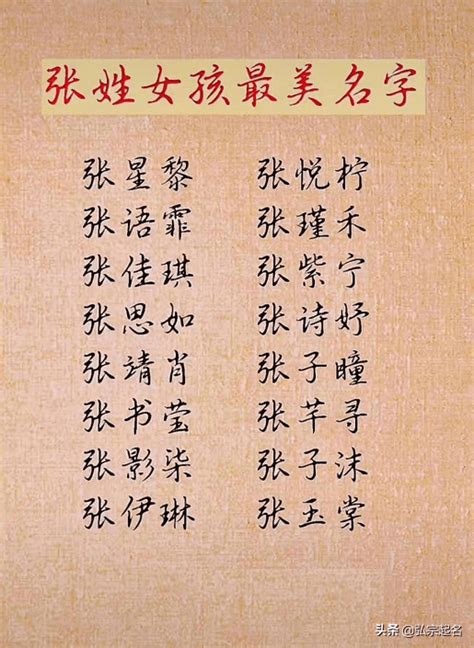 张姓女孩最美名字
张星黎 张悦柠
张语霏 张瑾禾
张佳琪 张紫宁
张思如 张诗妤
张靖肖 张子瞳
张书莹 张芊寻
张影柒 张子沫
张伊琳 张玉棠
头条@弘宗起名